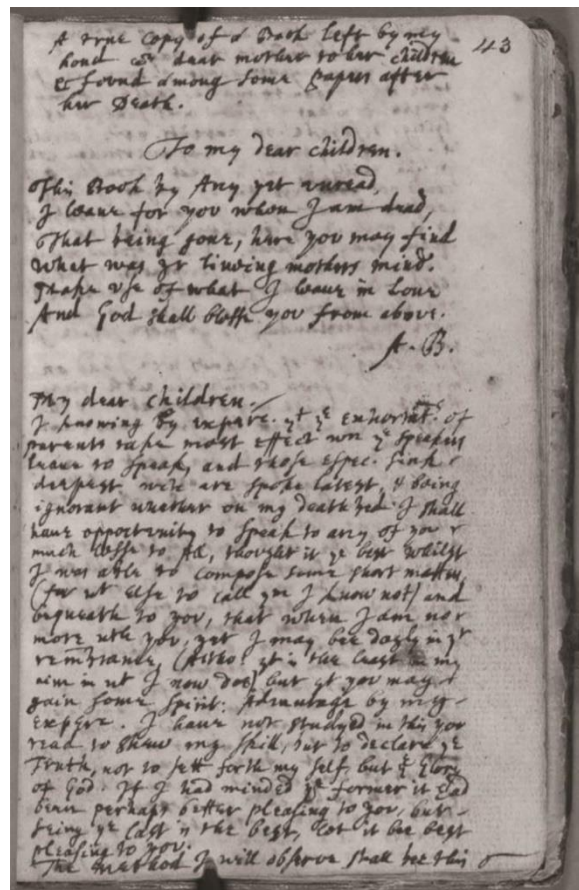 A true copy of a Book left by my
hond & dear mother to her children
& found among some papers after
her Death.
43
To my dear children.
This Book by Any yet unread,
I leaue for you when I am dead,
That being gone, here you may find
What was yr liueing mothers mind.
Make vse of what I leaue in Loue
And God shall blesse you from above.
A. B.
My dear children.
I knowing by experc. yt ye exhortat. of
parents take most effect wn ye speakers
leaue to speak, and those espec. sink
deepest wch are spoke latest, & being
ignorant whether on my death bed I shall
haue opportunity to speak to any of you
much lesse to All, thought it ye best whilst
I was able to compose some short matters,
(for wt else to call ym I know not) and
bequeath to you, that when I am no
more wth you, yet I may bee dayly in yr
remembrance, (Altho yt is the least in my
aim in wt I now doe) but yt you may
gain some spirit: Advantage by my
experc. I haue not studyed in this you
read to shew my skill, but to declare ye
Truth, not to sett forth my self, but ye Glory
of God. If I had minded ye former it had
been perhaps better pleasing to you, but
seing ye last is the best, let it bee best
pleasing to you.
The method I will observe shall bee this